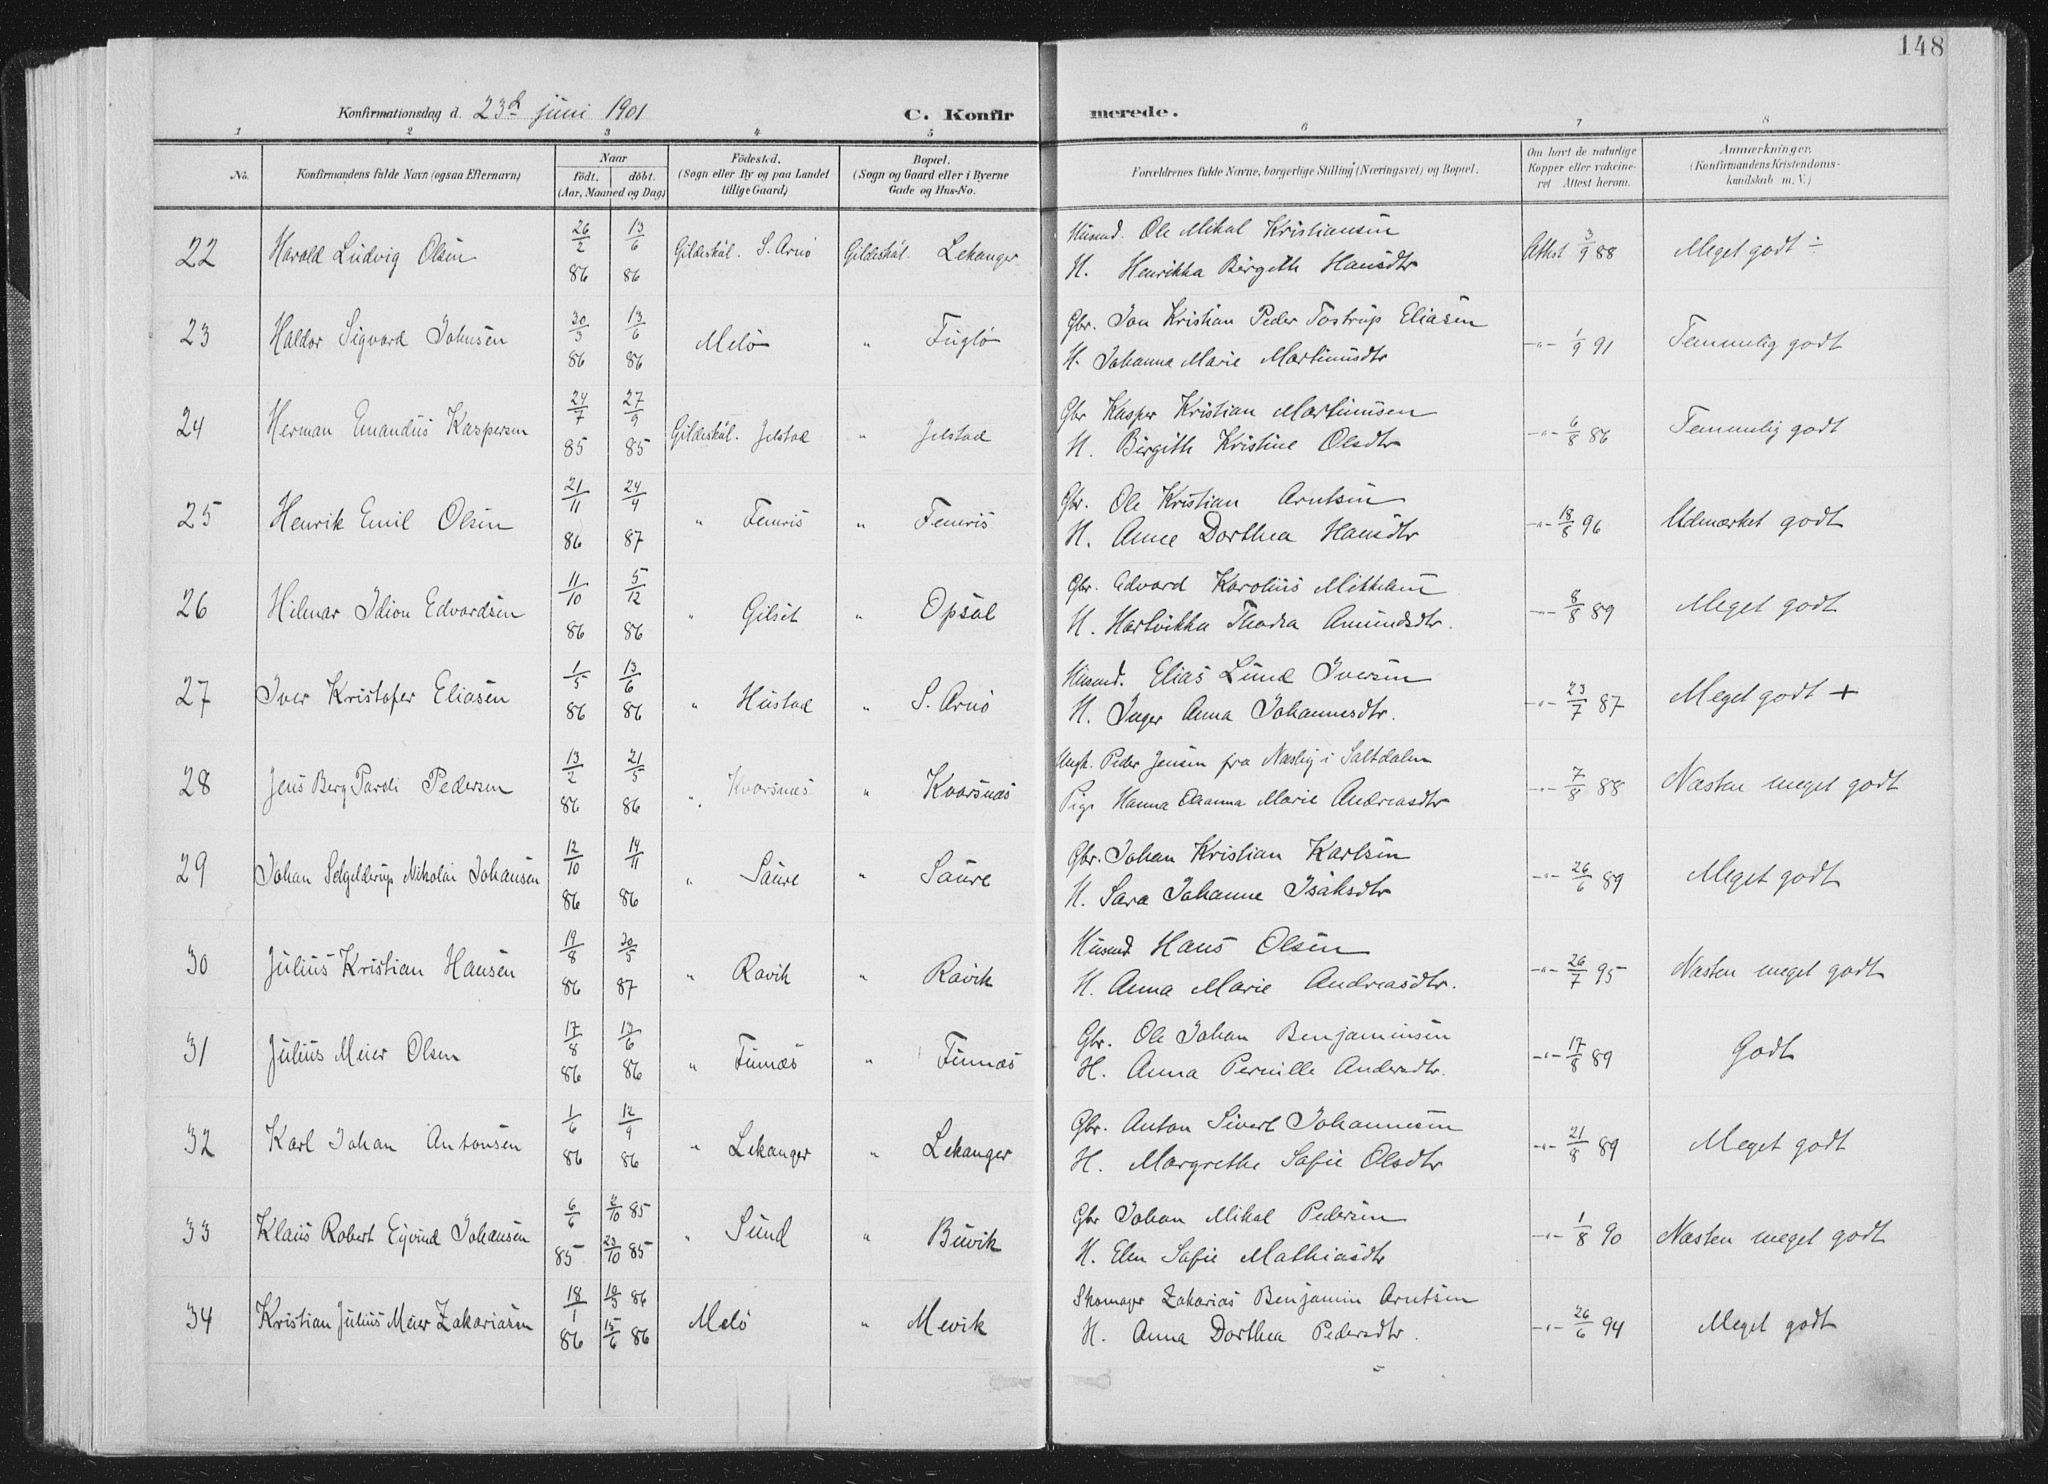 148
Konfirmationsdag d. 23d juni 1901 C. Konfirmerede.
1 2 3 4 5 6 7 8
No. Konfirmandens fulde Navn (ogsaa Efternavn) Naar født. døbt. (Aar, Maaned og Dag) Fødested. (Sogn eller By og paa Landet tillige Gaard) Bopæl. (Sogn og Gaard eller i Byerne Gade og Hus-No. Forældrenes fulde Navne, borgerlige Stilling (Næringsvei) og Bopæl. Om havt de naturlige Kopper eller vakcineret Attest herom. Anmærkninger. (Konfirmandens Kristendomskundskab m. V.)
22 Harald Ludvig Olsen 26/2 86 13/6 86 Gildeskål. S. Arnø Gildeskål. Lekanger Husmd. Ole Mikal Kristiansen Attest 3/9 88 Meget godt ÷
H. Henrikka Birgith Hansdtr
23 Haldor Sigvard Johnsen 30/3 86 13/6 86 Melø " Fuglø Gbr. Jon Kristian Peder Tostrup Eliasen -"- 1/9 91 Temmelig godt
H. Johanna Marie Martinusdtr
24 Herman Emandus Kaspersen 24/7 85 27/9 85 Gildeskål. Jelstad " Jelstad Gbr Kasper Kristian Martinusen -"- 6/8 86 Temmelig godt
H. Birgith Kristine Olsdtr
25 Henrik Emil Olsen 21/11 86 24/4 87 " Femris " Femris Gbr. Ole Kristian Arntsen -"- 18/8 96 Udmærket godt
H. Anne Dorthea Hansdtr
26 Hilmar Idion Edvardsen 11/10 86 5/12 86 " Gilset " Opsal Gbr. Edvard Karolius Mikkelsen -"- 8/8 89 Meget godt
H. Hartvikka Thodea Amundsdtr.
27 Iver Kristofer Eliasen 1/5 86 13/6 86 " Hustad " S. Arnø Husmd. Elias Lund Iversen -"- 23/7 87 Meget godt +
H. Inger Anna Johannesdtr.
28 Jens Berg Pavdi Pedersen 13/2 86 21/5 86 " Kvarsnæs " Kvarsnæs Ungk. Peder Jensen fra Næsby i Saltdalen -"- 7/8 88 Næsten meget godt
Pige Hanna Marie Andreasdtr
29 Johan Selgelderup Nikolai Johansen 12/10 86 14/11 86 " Saure " Saure Gbr. Johan Kristian Karlsen -"- 26/6 89 Meget godt
H. Sara Johanne Isaksdtr
30 Julius Kristian Hansen 19/8 86 30/5 87 " Ravik " Ravik Husmd Hans Olsen -"- 26/7 95 Næsten meget godt
H. Anna Marie Andreasdtr.
31 Julius Meier Olsen 17/8 86 13/6 86 " Finnæs " Finnæs Gbr. Ole Johan Benjaminsen -"- 17/8 89 Godt
H. Anna Pernille Andersdtr.
32 Karl Johan Antonsen 1/6 86 12/9 86 " Lekanger " Lekanger Gbr. Anton Sivert Johannesen -"- 21/8 89 Meget godt
H. Margrethe Sofie Olsdtr
33 Klaus Robert Eyvind Johansen 6/6 85 2/10 85 23/10 85 " Sund " Buvik Gbr Johan Mikal Pedersen -"- 1/8 90 Næsten meget godt
H. Elen Sofie Mathiasdtr
34 Kristian Julius Meier Zakariasen 18/1 86 10/3 86 15/6 86 Melø " Mevik Skomager Zakarias Benjamin Arntsen -"- 26/6 94 Meget godt
H. Anna Dorthea Pedersdtr.